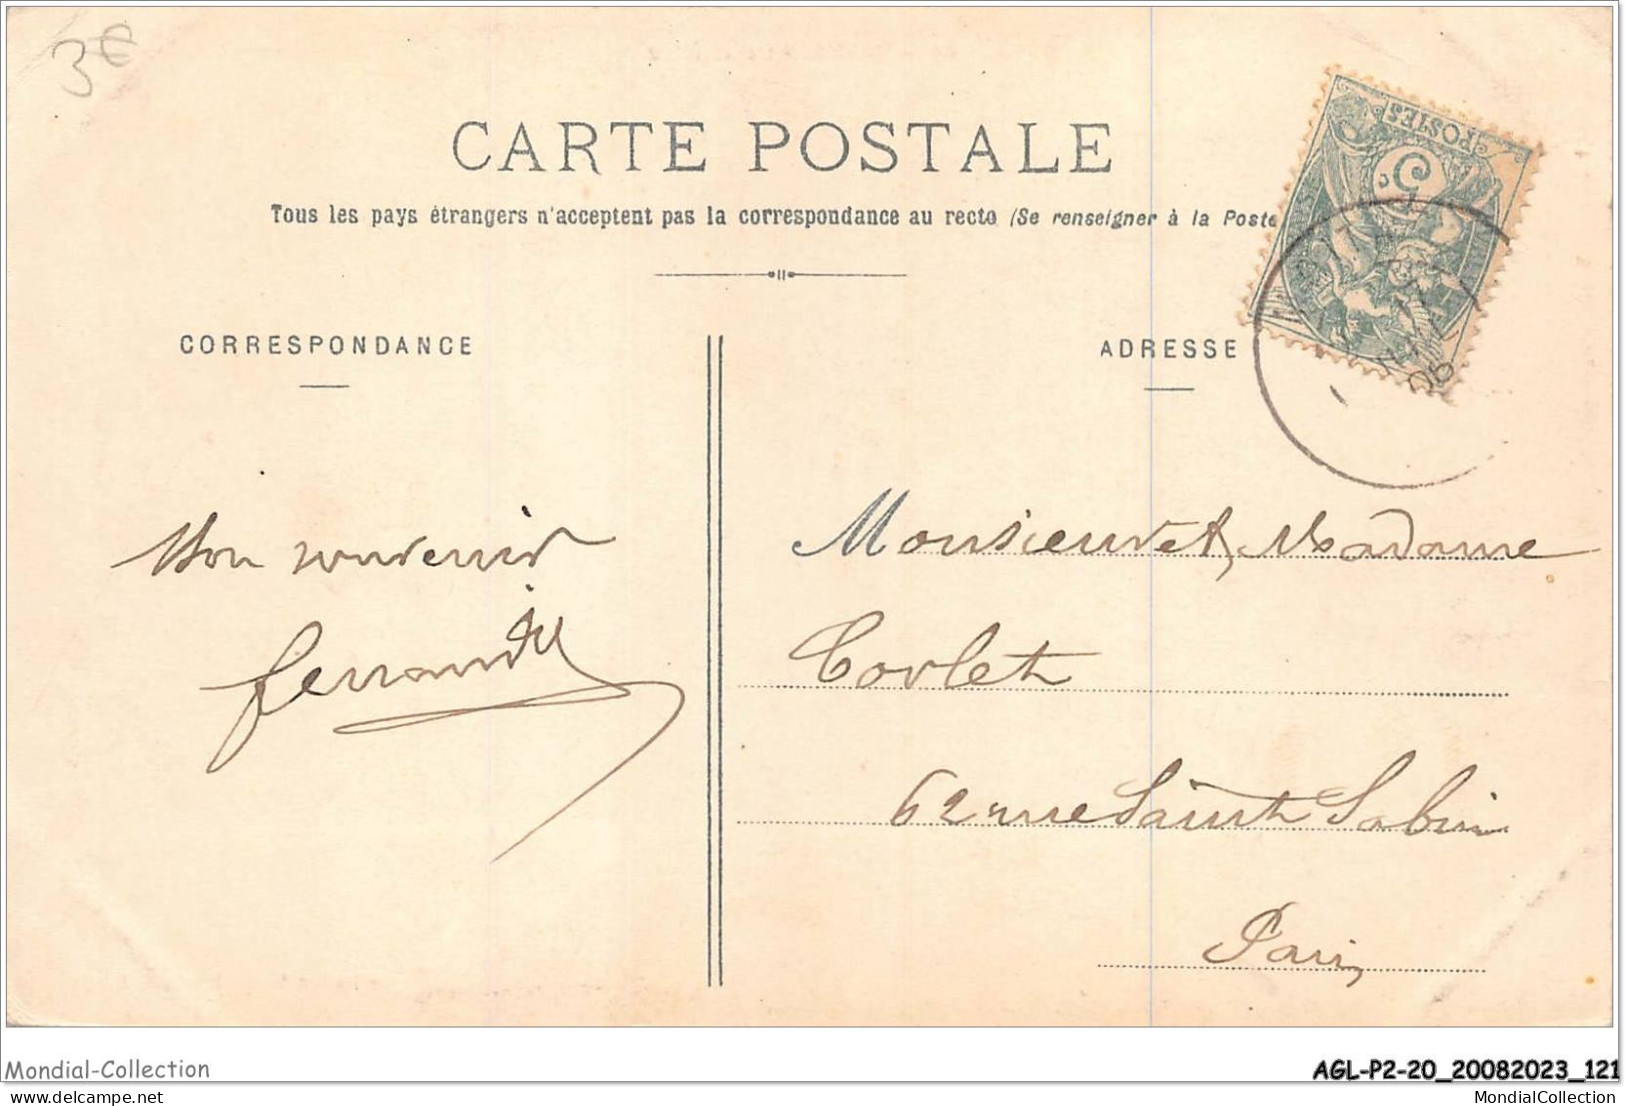 3€
CARTE POSTALE
Tous les pays étrangers n'acceptent pas la correspondance au recto (Se renseigner à la Poste
POSTES
5
CORRESPONDANCE
ADRESSE
06
Mon souvenir
Monsieur et Madame
Corlet
62 rue Saint Sabin
Paris
Mondial-Collection
AGL-P2-20_20082023_121
delcampe.net
MondialCollection